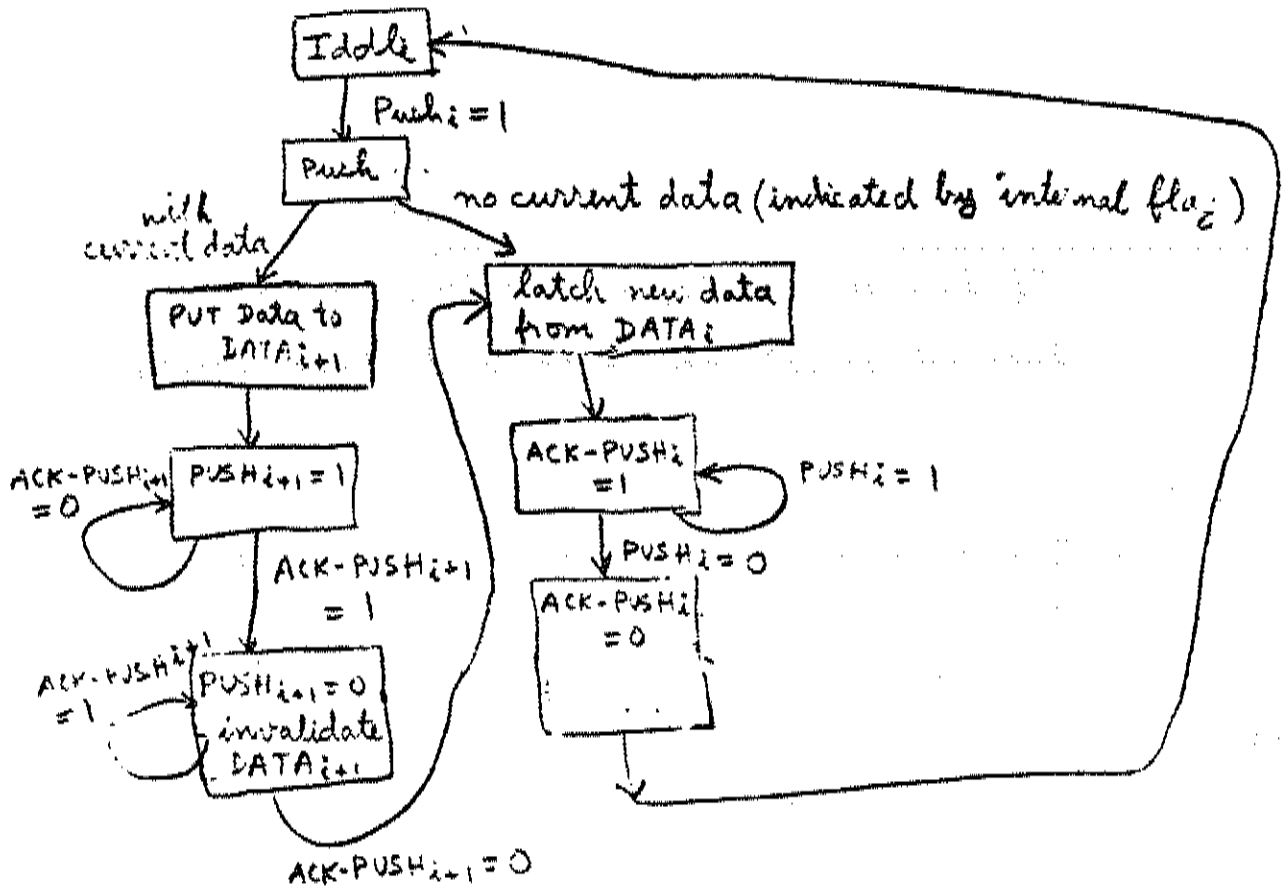 Iddle
Push i = 1
Push
with
current data
no current data (indicated by internal flag)
PUT Data to
DATA i+1
latch new data
from DATA i
ACK-PUSH i+1
= 0
PUSH i+1 = 1
ACK-PUSH i
= 1
PUSH i = 1
ACK-PUSH i+1
= 1
PUSH i = 0
ACK-PUSH i
= 0
ACK-PUSH i+1
= 1
PUSH i+1 = 0
invalidate
DATA i+1
ACK-PUSH i+1 = 0